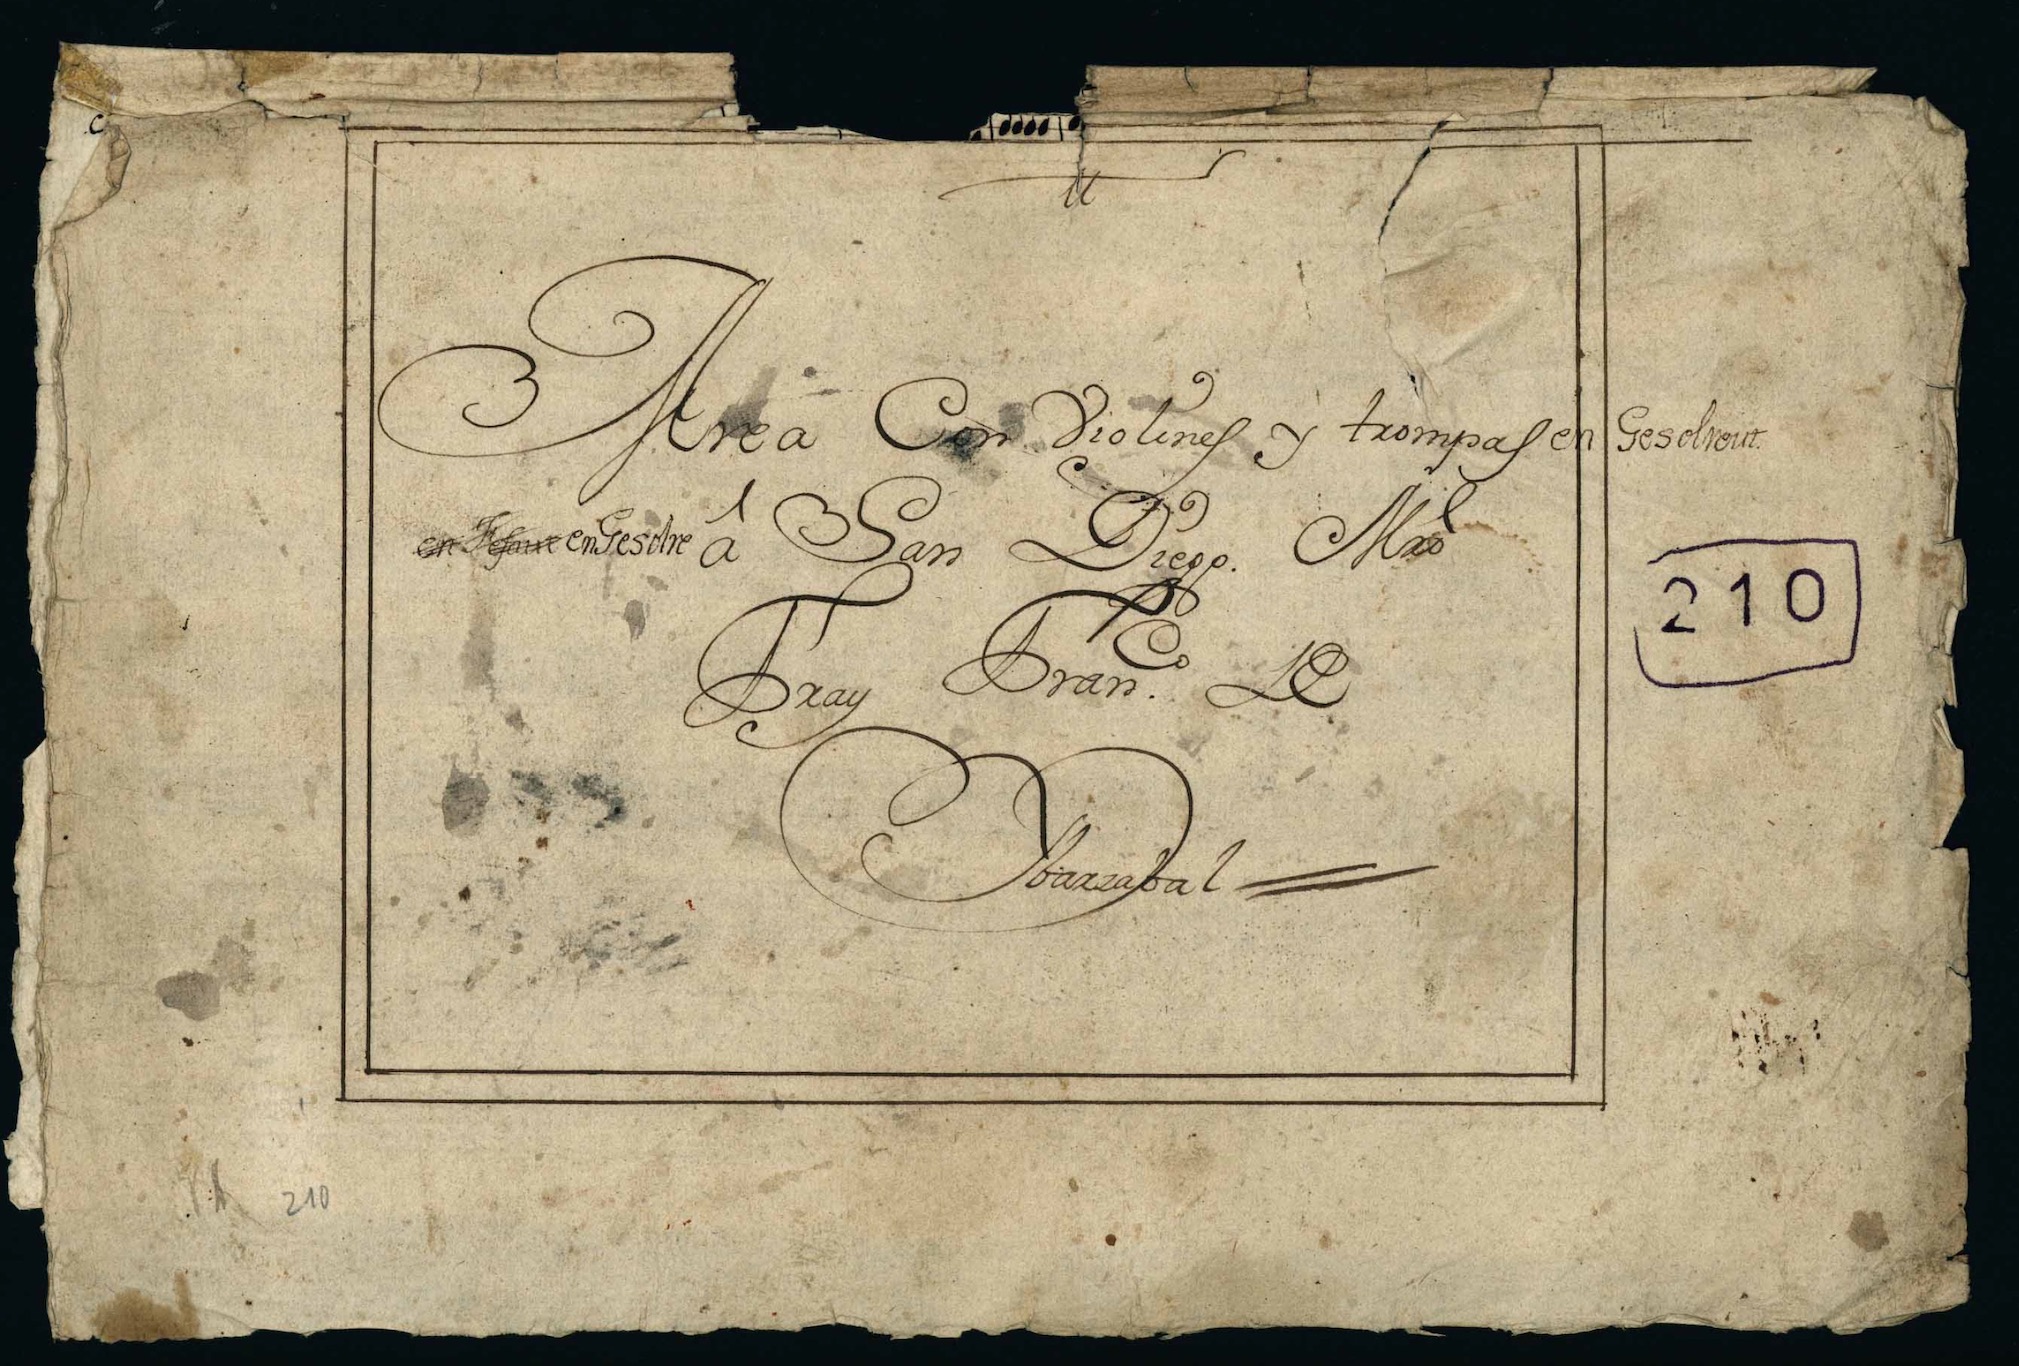 Area Con Violines y trompas en Gesolreut.
en Fefaut en Gesolre â San Diego. Mro
Fray Fran.co
Ybarzabal
210
210